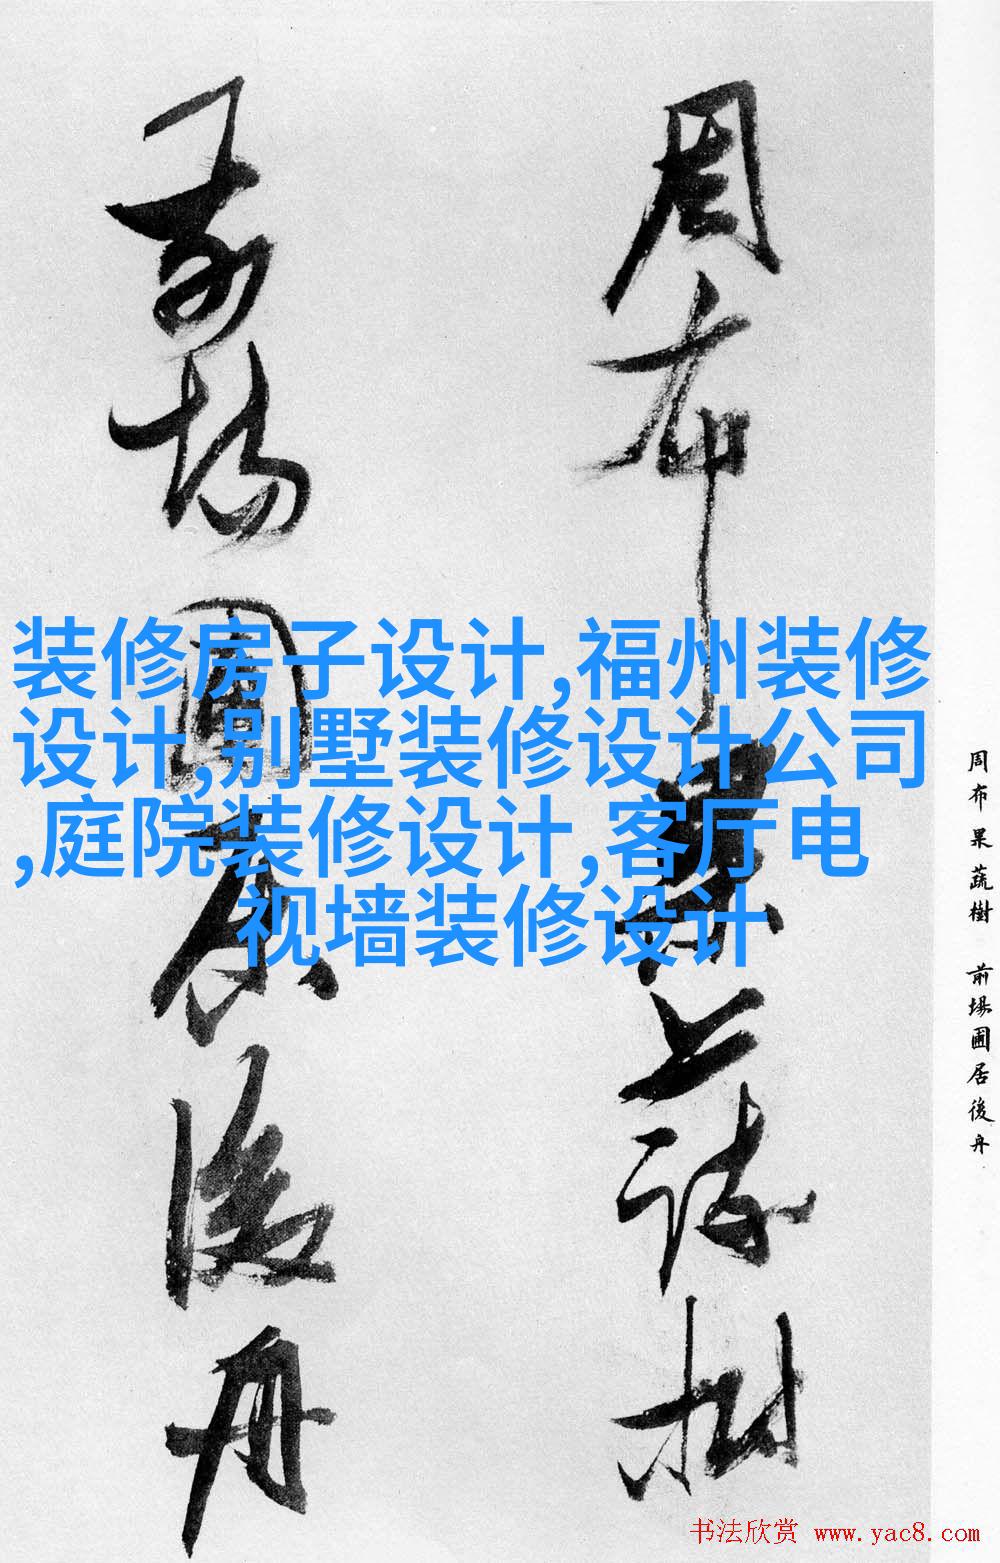 周布果蔬樹
前場圃居後舟
装修房子设计,福州装修
设计,别墅装修设计公司
,庭院装修设计,客厅电
视墙装修设计
周布果蔬樹 前場圃居後舟
书法欣赏 www.yac8.com